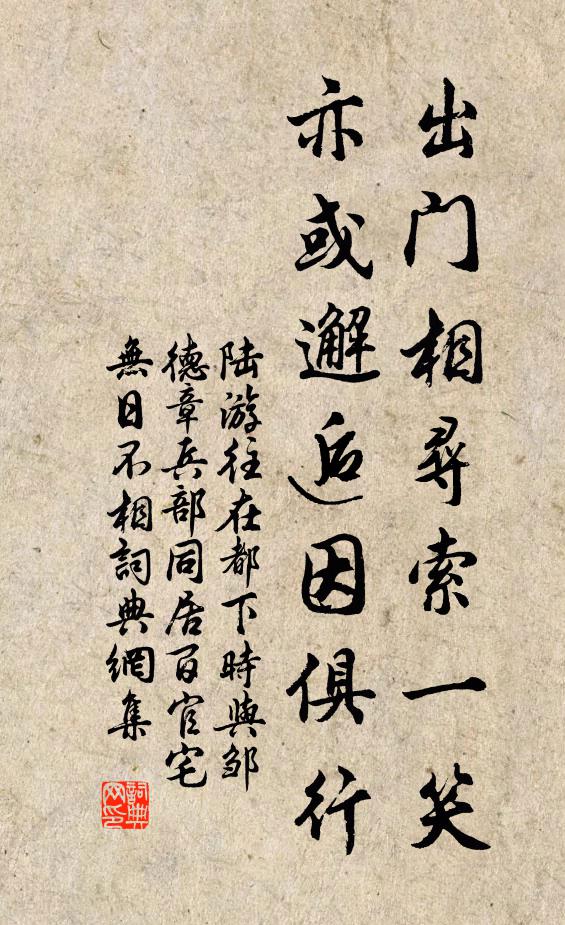 出门相尋索一笑
亦或邂逅因俱行
陆游往在都下時與邹
德章兵部同居百官宅
無日不相詞典網集
詞典
网印